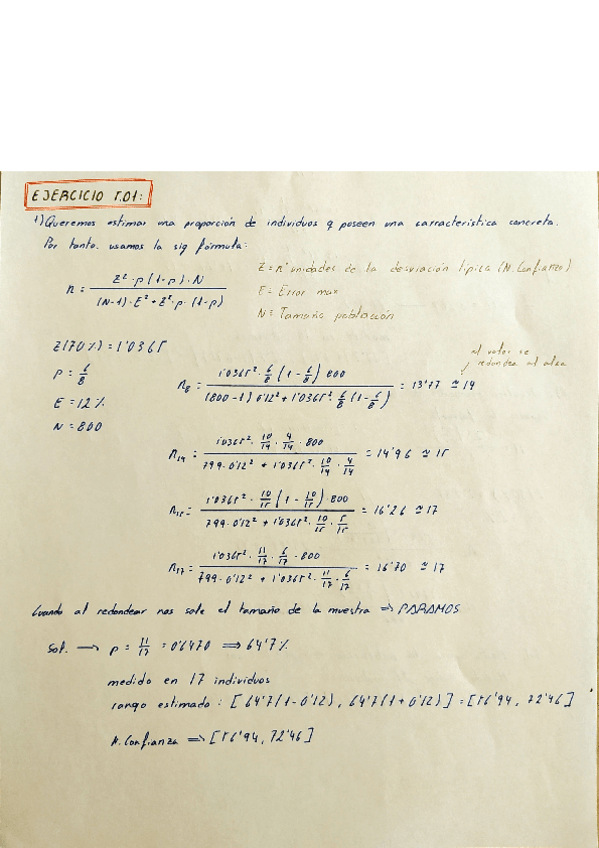 EJERCICIO T.01:
1) Queremos estimar una proporción de individuos q poseen una carracteristica concreta.
Por tanto. usamos la sig fórmula:
n = Z² · p (1-p) · N / (N-1) · E² + Z² · p · (1-p)
Z = nº unidades de la desviación típica (N. Confianza)
E = Error max
N = Tamaño población
Z(70%) = 1'0365
P = 6/8
E = 12 %
N = 800
n₈ = 1'0365² · 6/8 (1 - 6/8) 800 / (800-1) 0'12² + 1'0365² · 6/8 (1-6/8) = 13'77 ≃ 14
al valor se
redondea al alza
n₁₄ = 1'0365² · 10/14 · 4/14 · 800 / 799 · 0'12² + 1'0365² · 10/14 · 4/14 = 14'96 ≃ 15
n₁₅ = 1'0365² · 10/15 (1 - 10/15) · 800 / 799 · 0'12² + 1'0365² · 10/15 · 5/15 = 16'26 ≃ 17
n₁₇ = 1'0365² · 11/17 · 6/17 · 800 / 799 · 0'12² + 1'0365² · 11/17 · 6/17 = 16'70 ≃ 17
Cuando al redondear nos sale el tamaño de la muestra ⇒ PARAMOS
Sol. → p = 11/17 = 0'6470 ⇒ 64'7 %
medido en 17 individuos
rango estimado: [64'7(1-0'12), 64'7(1+0'12)] = [56'94, 72'46]
N. Confianza ⇒ [56'94, 72'46]